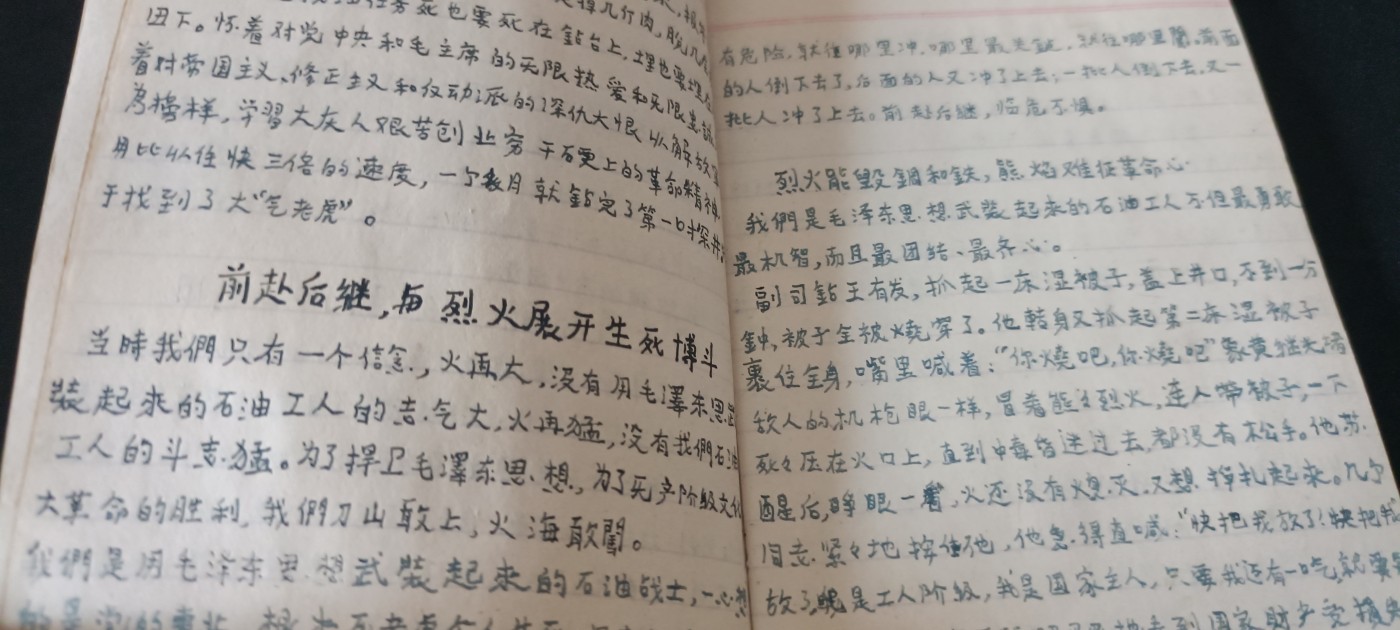 任务死也要死在鉆台上,埋也要埋
田下。怀着对党中央和毛主席的无限热爱和无限忠誠
着对帝国主义、修正主义和反动派的深仇大恨以解放
为榜样,学習大庆人艰苦创业穷干石更上的革命精神
月比以往快三倍的速度,一个月就鉆完了第一口深井,
于找到了大“气老虎”。
前赴后継,与烈火展开生死博斗
当時我們只有一个信念,火再大,没有用毛澤东思想
装起来的石油工人的志气大,火再猛,没有我們石油
工人的斗志猛。为了捍卫毛澤东思想,为了无产阶級文化
大革命的胜利,我們刀山敢上,火海敢闖。
我們是用毛泽东思想武装起来的石油战士,一心想
有危险,就往哪里冲,哪里最关鍵,就往哪里闖,前面
的人倒下去了,后面的人又冲了上去;一批人倒下去,又一
批人冲了上去。前赴后继,临危不惧。
烈火能毁鋼和鉄,熊焰难征革命心
我們是毛泽东思想武装起来的石油工人不但最勇敢
最机智,而且最团结、最齐心。
副司鉆王有发,抓起一床湿被子,盖上井口,不到一分
鈡,被子全被燒穿了。他轉身又抓起第二床湿被子
裹住全身,嘴里喊着:“你燒吧,你燒吧”象黄继光堵
敌人的机枪眼一样,冒着熊々烈火,连人带被子,一下
死々压在火口上,直到中毒昏迷过去,都没有松手。他苏
醒后,睁眼一看,火还没有熄灭,又想挣扎起来。几个
同志紧々地按住他,他急得直喊:“快把我放了!快把我
放了,我是工人阶級,我是国家主人,只要我还有一口气,就要
到国家財产受損